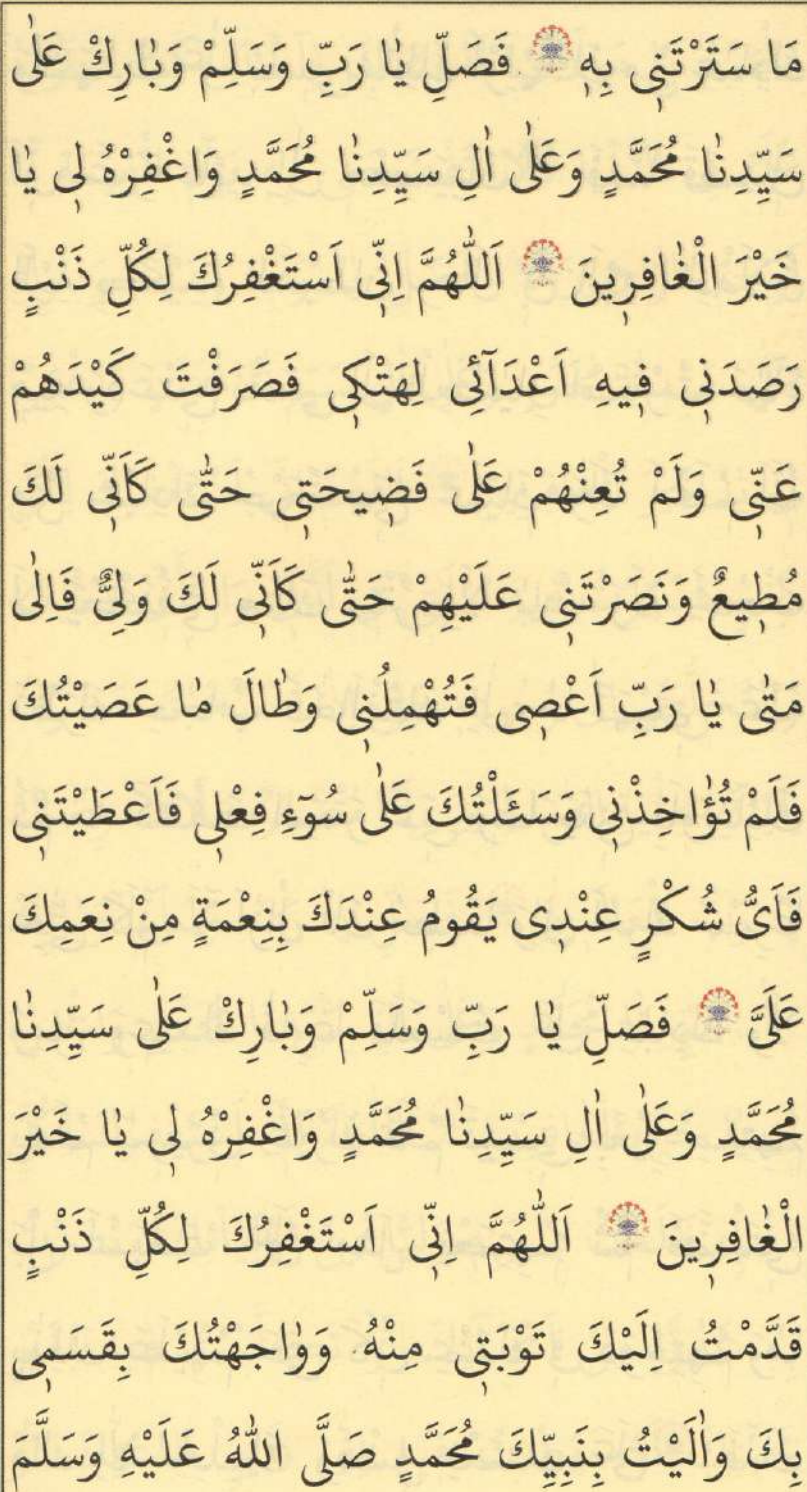 مَا سَتَرْتَنٖى بِهٖ ۞ فَصَلِّ يٰا رَبِّ وَسَلِّمْ وَبٰارِكْ عَلٰى
سَيِّدِنٰا مُحَمَّدٍ وَعَلٰى اٰلِ سَيِّدِنٰا مُحَمَّدٍ وَاغْفِرْهُ لٖى يٰا
خَيْرَ الْغٰافِرٖينَ ۞ اَللّٰهُمَّ اِنّٖى اَسْتَغْفِرُكَ لِكُلِّ ذَنْبٍ
رَصَدَنٖى فٖيهِ اَعْدَآئِى لِهَتْكٖى فَصَرَفْتَ كَيْدَهُمْ
عَنّٖى وَلَمْ تُعِنْهُمْ عَلٰى فَضٖيحَتٖى حَتّٰى كَاَنّٖى لَكَ
مُطٖيعٌ وَنَصَرْتَنٖى عَلَيْهِمْ حَتّٰى كَاَنّٖى لَكَ وَلِىٌّ فَاِلٰى
مَتٰى يٰا رَبِّ اَعْصٖى فَتُهْمِلُنٖى وَطٰالَ مٰا عَصَيْتُكَ
فَلَمْ تُؤٰاخِذْنٖى وَسَئَلْتُكَ عَلٰى سُوٓءِ فِعْلٖى فَاَعْطَيْتَنٖى
فَاَىُّ شُكْرٍ عِنْدٖى يَقُومُ عِنْدَكَ بِنِعْمَةٍ مِنْ نِعَمِكَ
عَلَىَّ ۞ فَصَلِّ يٰا رَبِّ وَسَلِّمْ وَبٰارِكْ عَلٰى سَيِّدِنٰا
مُحَمَّدٍ وَعَلٰى اٰلِ سَيِّدِنٰا مُحَمَّدٍ وَاغْفِرْهُ لٖى يٰا خَيْرَ
الْغٰافِرٖينَ ۞ اَللّٰهُمَّ اِنّٖى اَسْتَغْفِرُكَ لِكُلِّ ذَنْبٍ
قَدَّمْتُ اِلَيْكَ تَوْبَتٖى مِنْهُ وَوٰاجَهْتُكَ بِقَسَمٖى
بِكَ وَاٰلَيْتُ بِنَبِيِّكَ مُحَمَّدٍ صَلَّى اللّٰهُ عَلَيْهِ وَسَلَّمَ